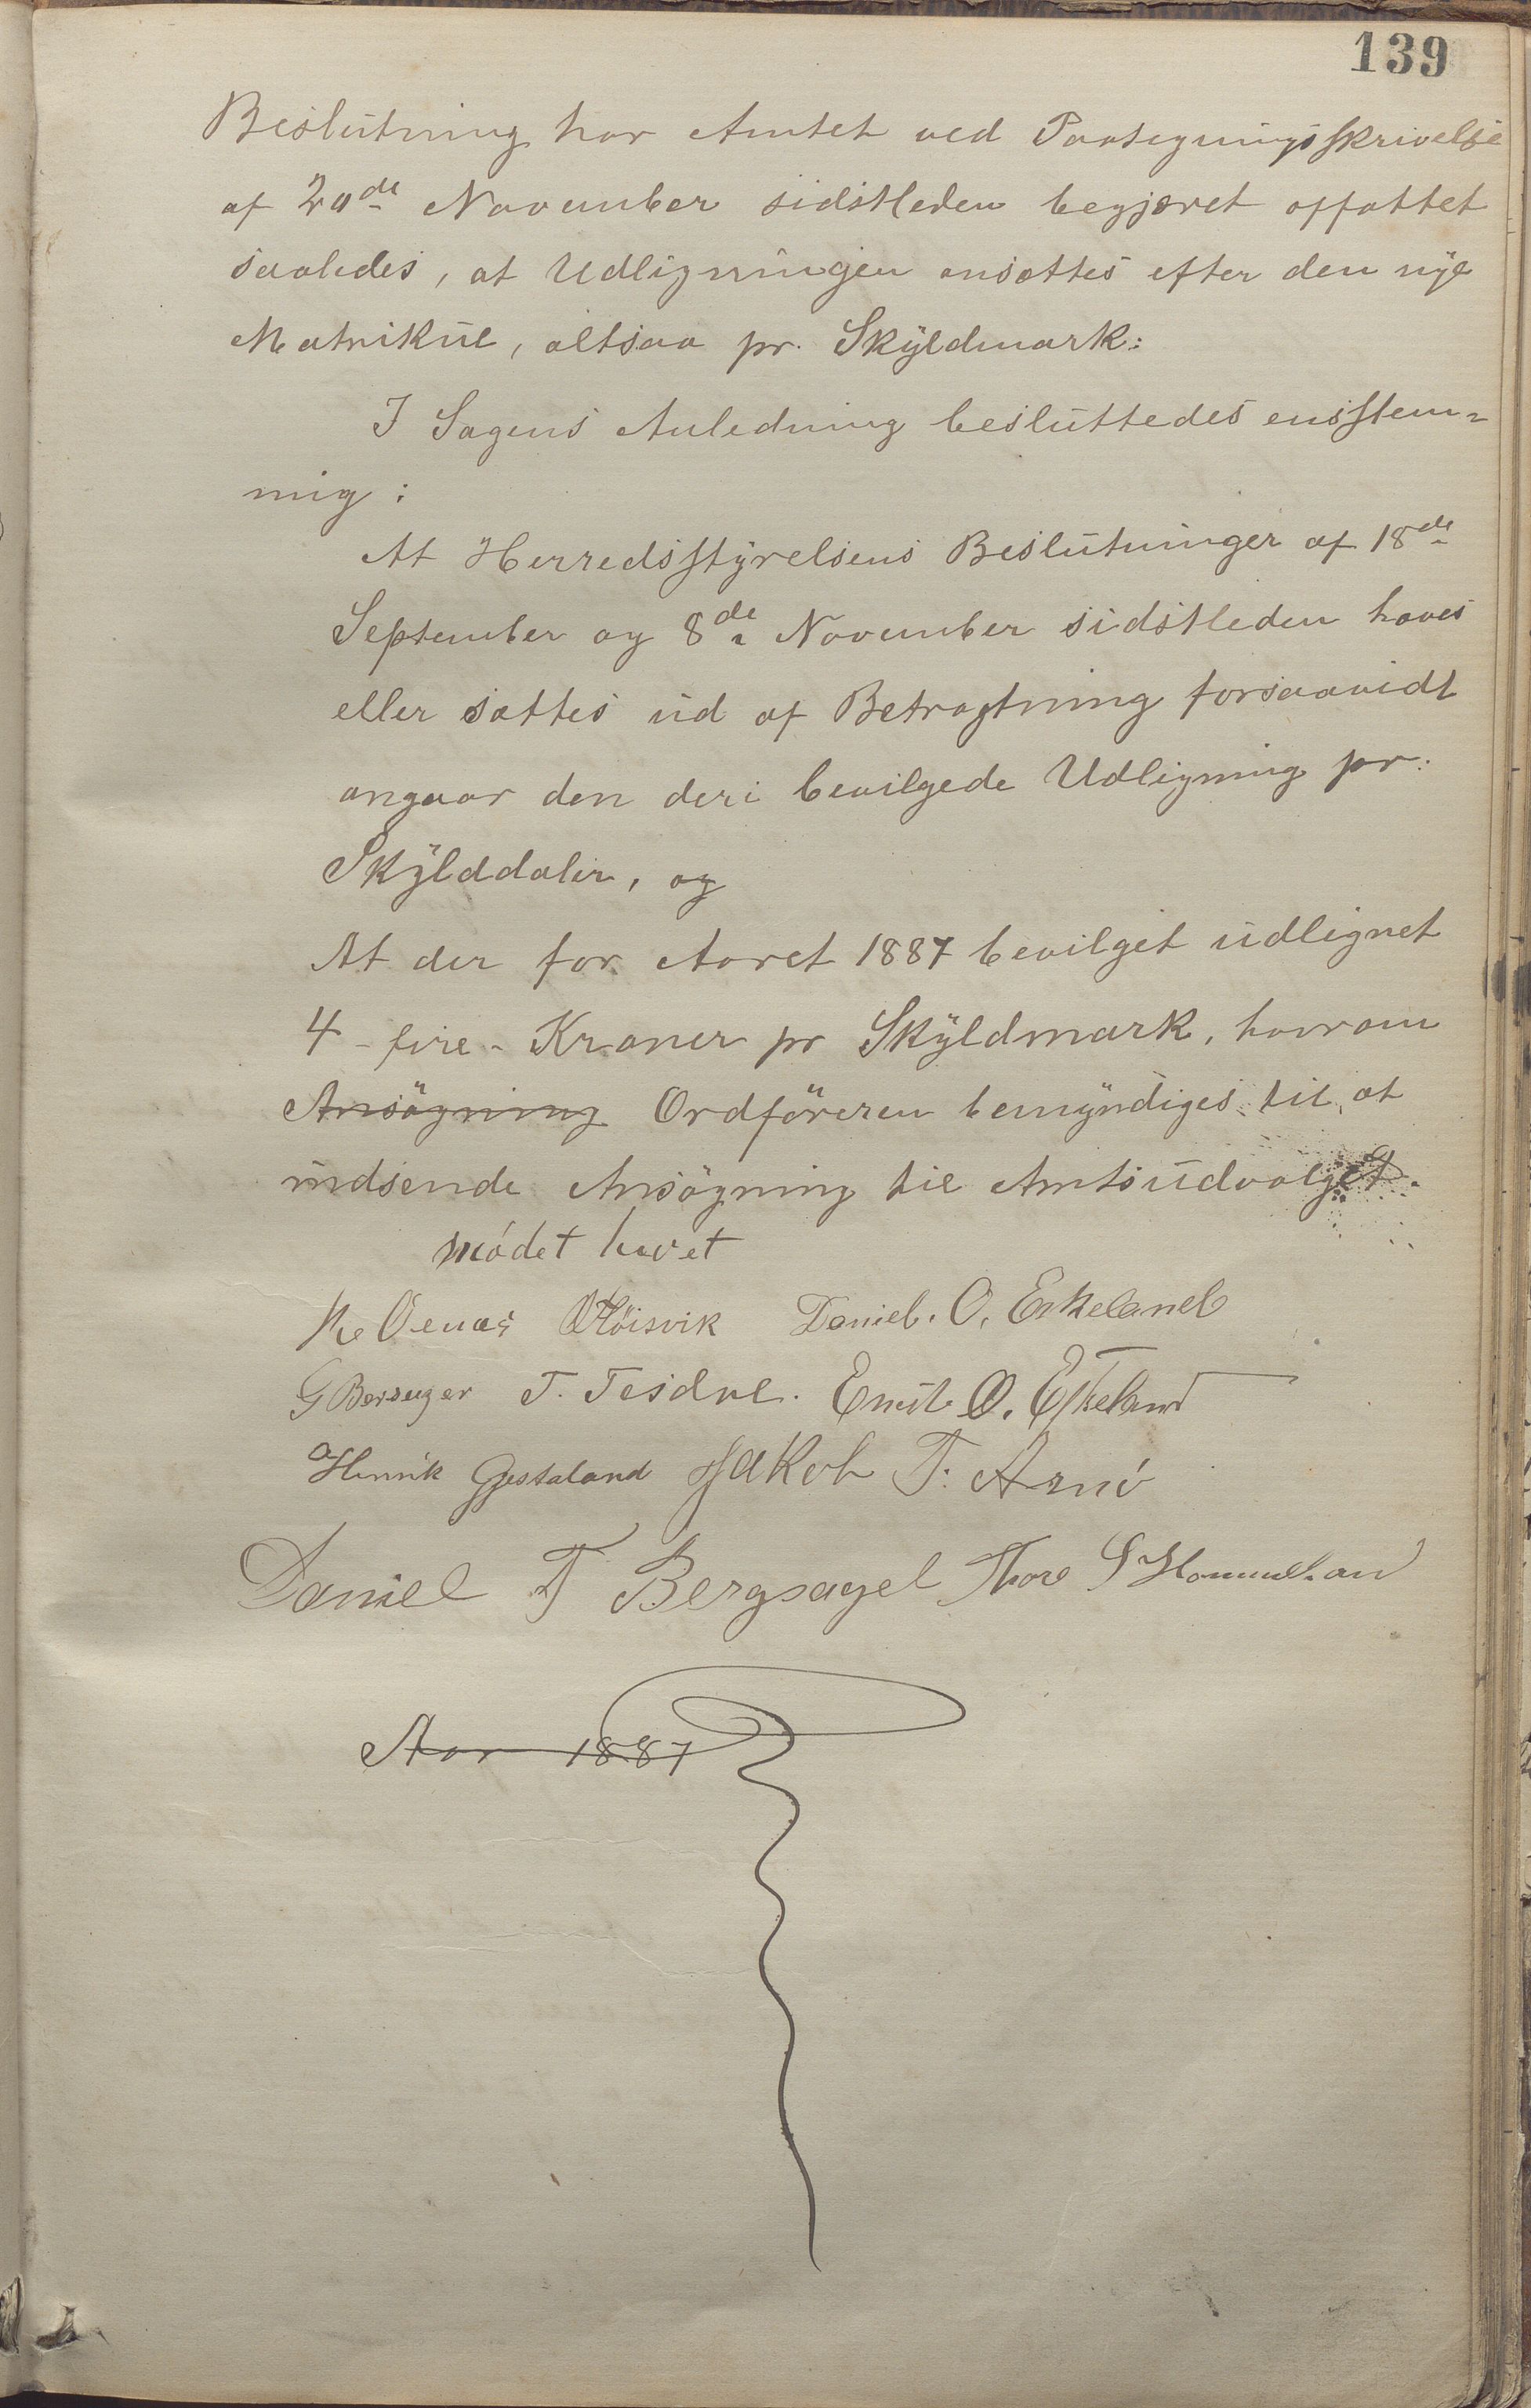 139
Beslutning har Amtet ved Paategningsskrivelse
af 20de November sidstleden begjæret affattet
saaledes, at Udligningen ansættes efter den nye
Matrikul, altsaa pr. Skyldmark:
I Sagens Anledning besluttedes enstem-
mig:
At Herredsstyrelsens Beslutninger af 18de
September og 8de November sidstleden haves
eller sættes ud af Betragtning forsaavidt
angaar den deri bevilgede Udligning pr.
Skylddaler, og
At der for Aaret 1887 bevilget udlignet
4 - fire - Kroner pr Skyldmark, hvorom
Ansøgning Ordföreren bemyndiges til at
indsende Ansøgning til Amtsudvalget.
Mødet hævet
Høisvik Daniel. O. Eskeland
T. Tesdal. Emil O. Eskeland
Henrik Gjestaland Jakob T. Arnó
Daniel T Bergsagel Thore S Hommeland
Aar 1887